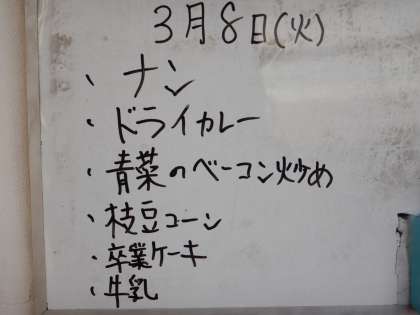 3月8日(火)
・ナン
・ドライカレー
・青菜のベーコン炒め
・枝豆コーン
・卒業ケーキ
・牛乳